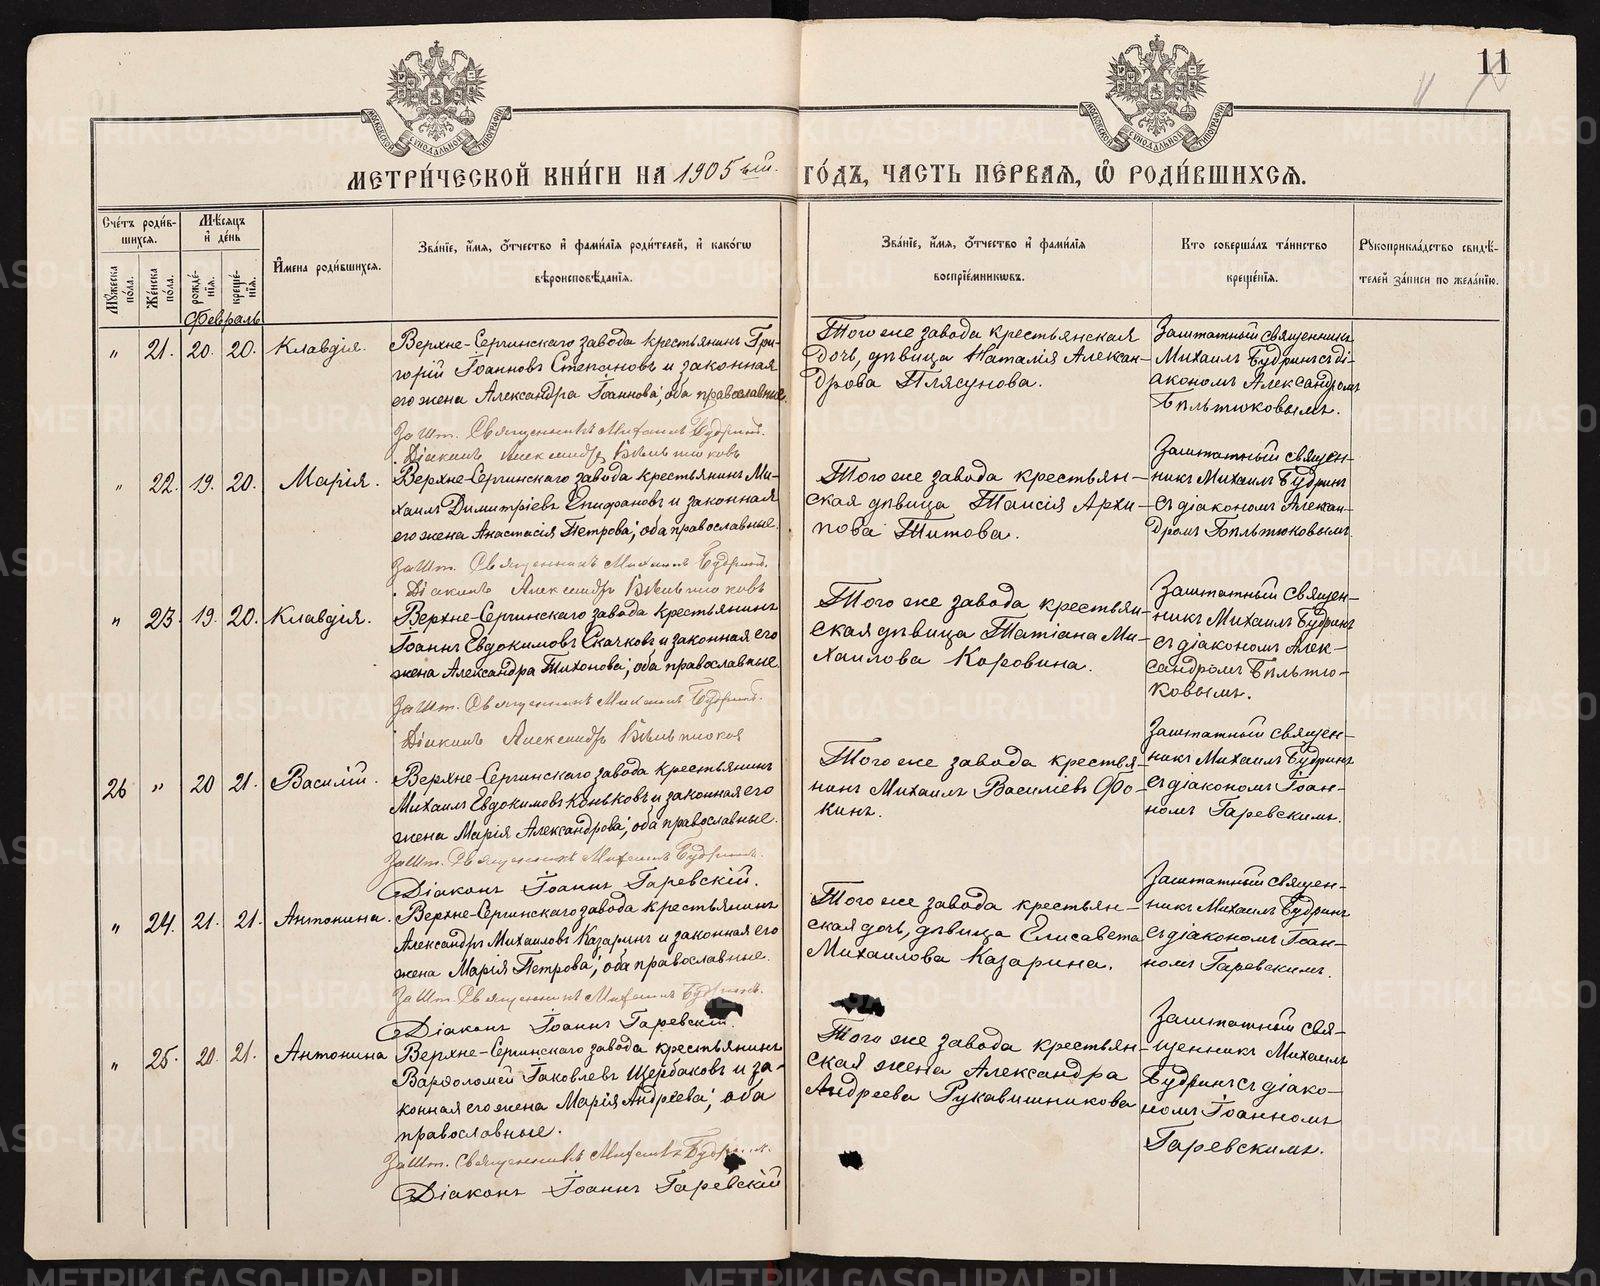 11
МЕТРИ́ЧЕСКОЙ КНИ́ГИ НА 1905ый. ГО́ДЪ, ЧАСТЬ ПЕ́РВАЯ, Ѽ РОДИ́ВШИХСЯ.
Сче́тъ роди́в-
шихся.
Му́жеска по́ла.
Же́нска по́ла.
Мѣ́сяцъ и де́нь
рожде́-нія.
креще́-нія.
И́мена роди́вшихся.
Зва́ніе, и́мя, о́тчество и фами́лія роди́телей, и како́гѡ
вѣроисповѣ́данія.
Зва́ніе, и́мя, о́тчество и фами́лія
воспріе́мникѡвъ.
Кто соверша́лъ та́инство
креще́нія.
Рукоприкла́дство свидѣ́-
телей за́писи по жела́нію.
Февраль
" 21. 20. 20. Клавдія.
Верхне-Сергинскаго завода крестьянинъ Гри-
горій Іоанновъ Степановъ и законная
его жена Александра Іоаннова; оба православные.
Зашт. Священникъ Михаилъ Будринъ.
Діаконъ Александръ Бѣльтюковъ
Того же завода крестьянская
дочь, дѣвица Наталія Алексан-
дрова Плясунова.
Заштатный священникъ
Михаилъ Будринъ съ ді-
акономъ Александромъ
Бѣльтюковымъ.
" 22. 19. 20. Марія.
Верхне-Сергинскаго завода крестьянинъ Ми-
хаилъ Димитріевъ Епифановъ и законная
его жена Анастасія Петрова; оба православные.
Зашт. Священникъ Михаилъ Будринъ.
Діаконъ Александръ Бѣльтюковъ
Того же завода крестьян-
ская дѣвица Таисія Архи-
пова Титова.
Заштатный священ-
никъ Михаилъ Будринъ
съ діакономъ Алексан-
дромъ Бѣльтюковымъ.
" 23. 19. 20. Клавдія.
Верхне-Сергинскаго завода крестьянинъ
Іоаннъ Евдокимовъ Скачковъ и законная его
жена Александра Тихонова; оба православные
Зашт. Священникъ Михаилъ Будринъ.
Діаконъ Александръ Бѣльтюковъ
Того же завода крестьян-
ская дѣвица Татіана Ми-
хаилова Коровина.
Заштатный священ-
никъ Михаилъ Будринъ
съ діакономъ Алек-
сандромъ Бѣльтю-
ковымъ.
26 " 20 21. Василій.
Верхне-Сергинскаго завода крестьянинъ
Михаилъ Евдокимовъ Коньковъ и законная его
жена Марія Александрова; оба православные.
Зашт. Священникъ Михаилъ Будринъ.
Діаконъ Іоаннъ Гаревскій.
Того же завода крестья-
нинъ Михаилъ Василіевъ Фо-
кинъ.
Заштатный священ-
никъ Михаилъ Будринъ
съ діакономъ Іоан-
номъ Гаревскимъ.
" 24. 21. 21. Антонина.
Верхне-Сергинскаго завода крестьянинъ
Александръ Михаиловъ Казаринъ и законная его
жена Марія Петрова; оба православные.
Зашт. Священникъ Михаилъ Будринъ.
Діаконъ Іоаннъ Гаревскій.
Того же завода крестьян-
ская дочь, дѣвица Елисавета
Михаилова Казарина.
Заштатный священ-
никъ Михаилъ Будринъ
съ діакономъ Іоан-
номъ Гаревскимъ.
" 25. 20. 21. Антонина
Верхне-Сергинскаго завода крестьянинъ
Варѳоломей Іаковлевъ Щербаковъ и за-
конная его жена Марія Андреева; оба
православные.
Зашт. Священникъ Михаилъ Будринъ.
Діаконъ Іоаннъ Гаревскій
Того же завода крестьян-
ская жена Александра
Андреева Рукавишникова
Заштатный свя-
щенникъ Михаилъ
Будринъ съ діако-
номъ Іоанномъ
Гаревскимъ.
METRIKI.GASO-URAL.RU